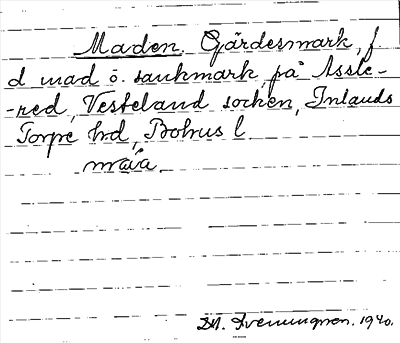 Maden. Gärdesmark, f.
d mad o. sankmark, på Assle-
-red, Vesteland socken, Inlands
Torpe hd, Bohus l
måa.
Sveningson. 1940.